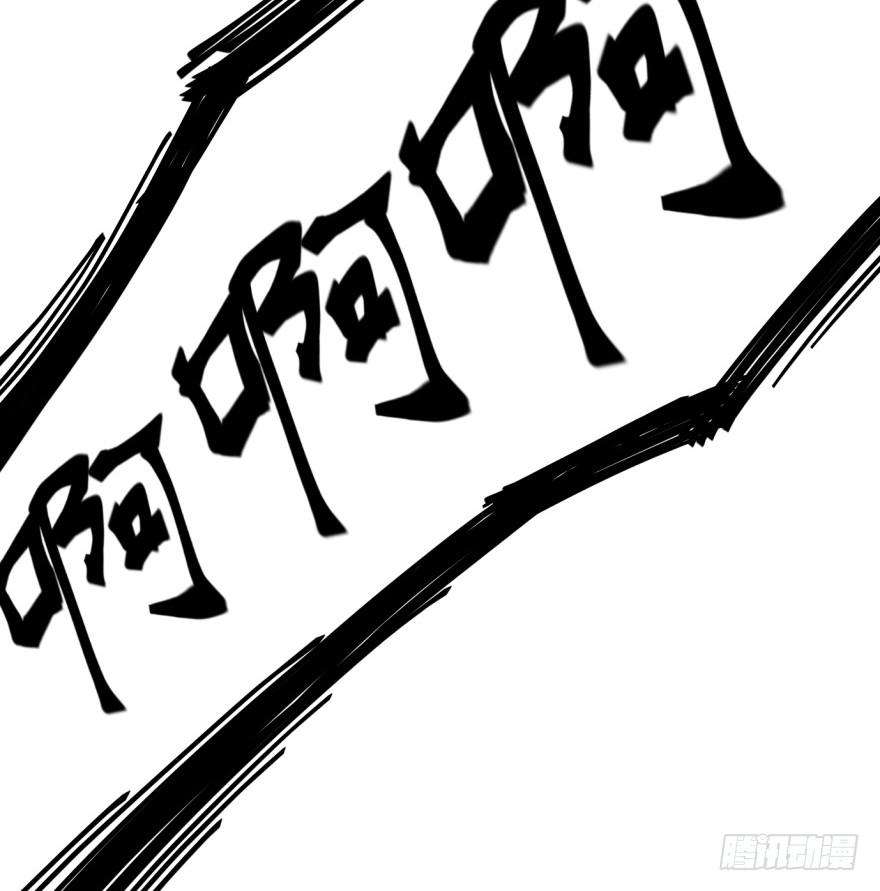 啊啊啊
腾讯动漫